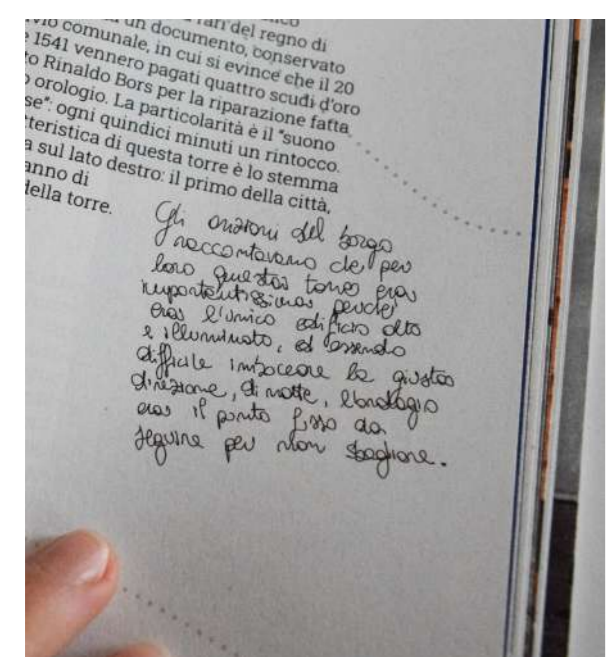 del regno di
un documento, conservato
comunale, in cui si evince che il 20
1541 vennero pagati quattro scudi d'oro
Rinaldo Bors per la riparazione fatta
orologio. La particolarità è il "suono
": ogni quindici minuti un rintocco.
di questa torre è lo stemma
sul lato destro: il primo della città,
anno di
della torre.
Gli anziani del borgo
raccontavano che, per
loro questa torre era
importantissima perché
era l'unico edificio alto
e illuminato, ed essendo
difficile imboccare la giusta
direzione, di notte, l'orologio
era il punto fisso da
seguire per non sbagliare.